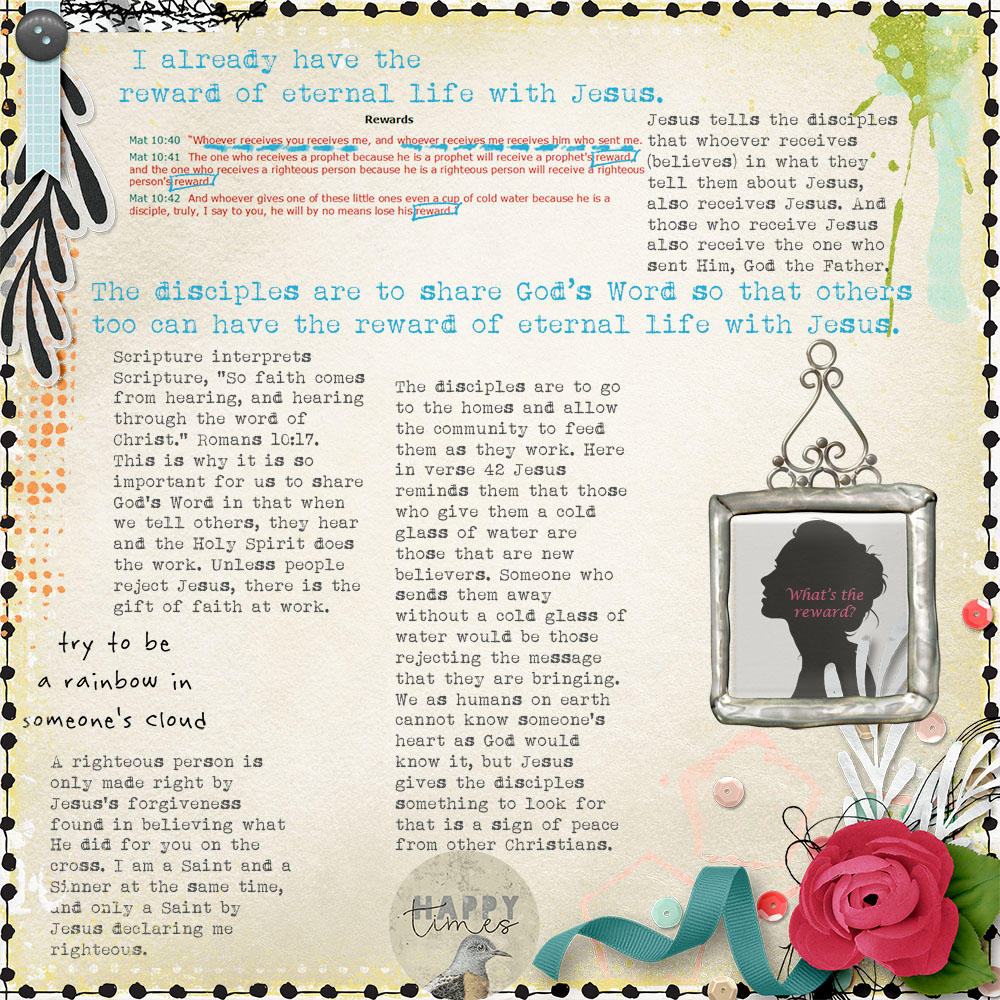 I already have the
reward of eternal life with Jesus.
Rewards
Mat 10:40 "Whoever receives you receives me, and whoever receives me receives him who sent me.
Mat 10:41 The one who receives a prophet because he is a prophet will receive a prophet's reward,
and the one who receives a righteous person because he is a righteous person will receive a righteous
person's reward.
Mat 10:42 And whoever gives one of these little ones even a cup of cold water because he is a
disciple, truly, I say to you, he will by no means lose his reward."
Jesus tells the disciples
that whoever receives
(believes) in what they
tell them about Jesus,
also receives Jesus. And
those who receive Jesus
also receive the one who
sent Him, God the Father.
The disciples are to share God's Word so that others
too can have the reward of eternal life with Jesus.
Scripture interprets
Scripture, "So faith comes
from hearing, and hearing
through the word of
Christ." Romans 10:17.
This is why it is so
important for us to share
God's Word in that when
we tell others, they hear
and the Holy Spirit does
the work. Unless people
reject Jesus, there is the
gift of faith at work.
The disciples are to go
to the homes and allow
the community to feed
them as they work. Here
in verse 42 Jesus
reminds them that those
who give them a cold
glass of water are
those that are new
believers. Someone who
sends them away
without a cold glass of
water would be those
rejecting the message
that they are bringing.
We as humans on earth
cannot know someone's
heart as God would
know it, but Jesus
gives the disciples
something to look for
that is a sign of peace
from other Christians.
What's the
reward?
try to be
a rainbow in
someone's cloud
A righteous person is
only made right by
Jesus's forgiveness
found in believing what
He did for you on the
cross. I am a Saint and a
Sinner at the same time,
and only a Saint by
Jesus declaring me
righteous.
HAPPY
times